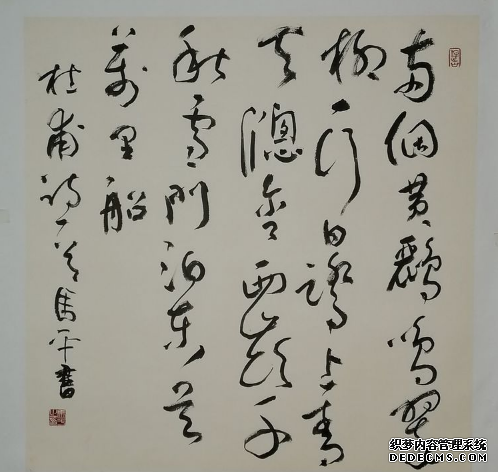 兩個黄鸝鳴翠
柳一行白鷺上青
天牕含西嶺千
秋雪門泊東吴
萬里船
杜甫詩一首 馬平書
织梦内容管理系统
DEDECMS.COM